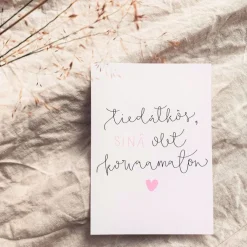 tiedäthös,
SINÄ olet
korvaamaton